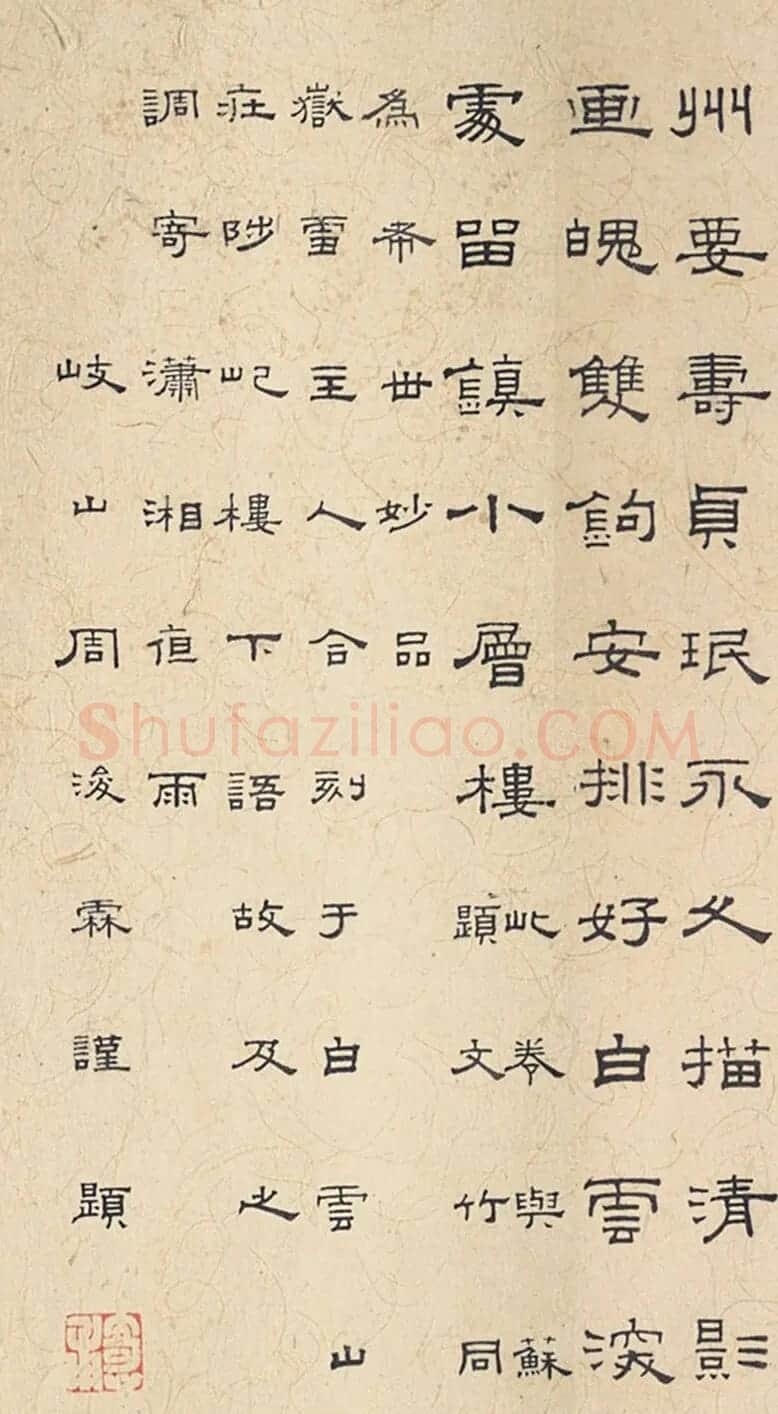 州要壽貞珉永久描清影
畫魄雙鉤安排好白雲深
處留鎮小層樓
此卷與蘇
題文竹同
為希世妙品
嶽雪主人合刻于白雲山
莊陟屺樓下語故及之
調寄瀟湘夜雨
岐山周浚霖謹題
Shufaziliao.COM